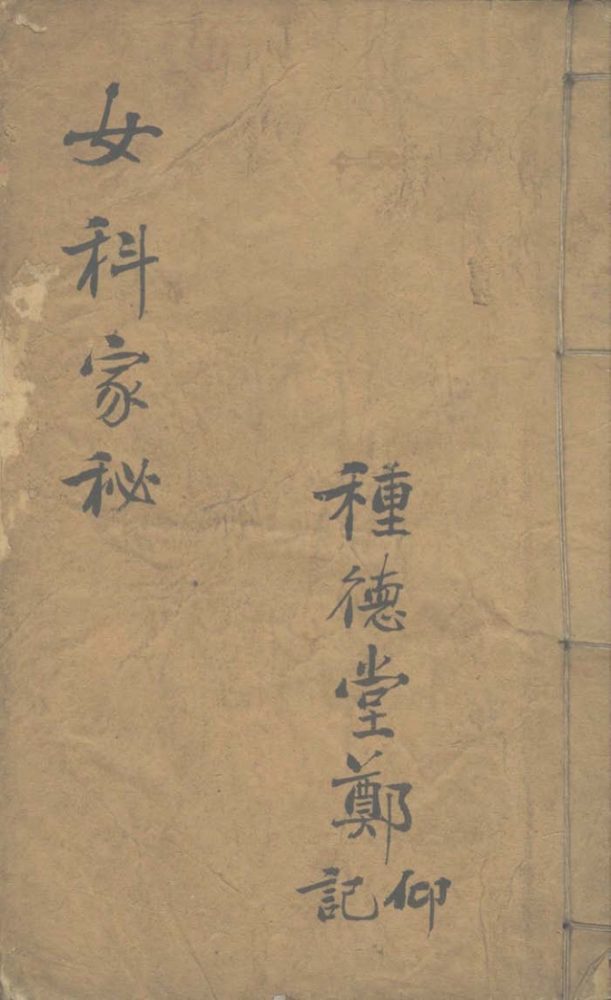 女科家秘
種德堂鄭仰記